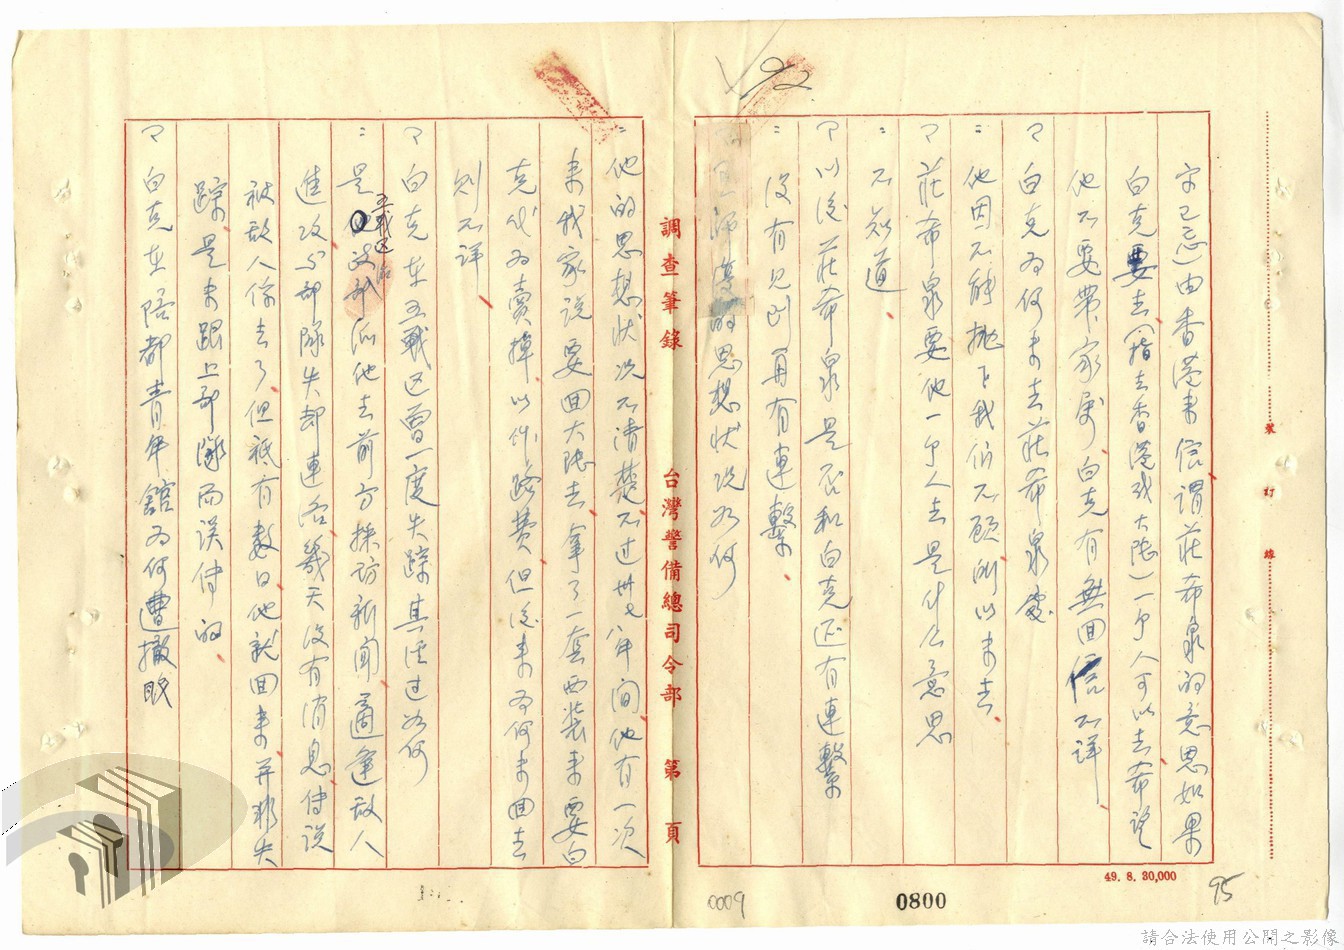 字已忘)由香港来信謂莊希泉的意思如果
白克要去(指去香港或大陸)一个人可以去希望
他不要帶家屬白克有無回信不詳
白克為何未去莊希泉處
他因不能抛下我们不顾所以未去
莊希泉要他一个人去是什么意思
不知道
以後莊希泉是否和白克还有連繫
沒有見到再有連繫
的思想狀况如何
調查筆錄 台灣警備總司令部 第 頁
他的思想狀况不清楚不过卅七八年间他有一次
来我家說要回大陸去拿了一套西装来要白
克代为賣掉以作路費但後来为何未回去
则不詳
白克在五戰区曾一度失踪其经过如何
是五戰区派他去前方採訪新闻適逢敌人
進攻与部隊失却連络幾天沒有消息传說
被敌人俘去了但祇有数日他就回来并非失
踪是未跟上部隊而误传的
白克在陪都青年館为何遭撤职
裝 訂 線
49. 8. 30,000
0009
0800
95
92
請合法使用公開之影像